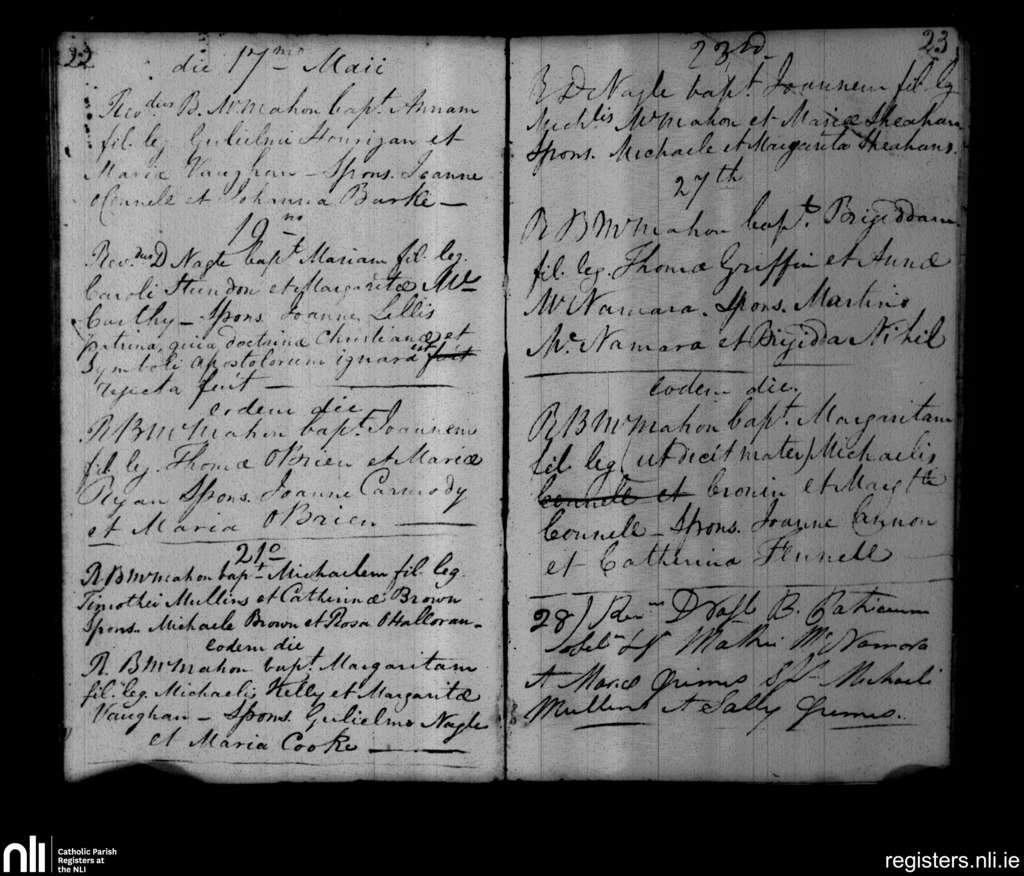 22
die 17mo Maii
Revdus B. McMahon bapt. Annam
fil. leg. Gulielmi Hourigan et
Mariæ Vaughan – Spons. Joanne
Connell et Johanna Burke –
19no
Revdus D Nagle bapt Mariam fil. leg.
Caroli et Margaritæ Mc
Carthy – Spons. Joanne Lillis
quia doctrinæ Christianæ et
Symboli Apostolorum ignara est fuit
rejecta fuit –
eodem die
R B McMahon bapt. Joannem
fil. leg. Thomæ OBrien et Mariæ
Ryan Spons. Joanne Carmody
et Maria OBrien
21o
R B McMahon bapt Michaelem fil. leg.
Timothei Mullins et Catherinæ Brown
Spons. Michaele Brown et Rosa OHalloran –
eodem die
R. B McMahon bapt. Margaritam
fil. leg. Michaelis Kelly et Margaritæ
Vaughan – Spons. Gulielmo Nagle
et Maria Cooke
23
23rd
R D Nagle bapt. Joannem fil. leg
Michlis McMahon et Mariæ Sheahan
Spons. Michaele et Margarita Sheahan.
27th
R B McMahon bapt. Brigiddam
fil. leg. Thomæ Griffin et Annæ
McNamara. Spons. Martino
McNamara et Brigidda Nihil
eodem die.
R B McMahon bapt. Margaritam
fil. leg. (ut decit mater) Michaelis
Connell et Cronin et Margtæ
Connell – Spons. Joanne Cannon
et Catherina Fennell
28) Revm D Nagle B. Patricium
Mathei McNamara
et Mariæ Grimes Sps Michaeli
Mullins et Sally Grimes.
nli
Catholic Parish
Registers at
the NLI
registers.nli.ie